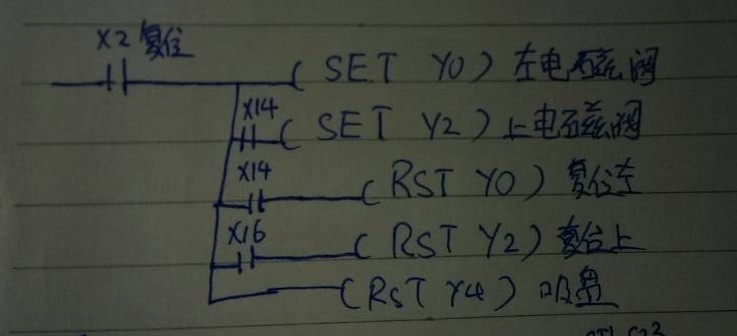 X2 复位
( SET Y0 ) 左电磁阀
X14
( SET Y2 ) 上电磁阀
X14
( RST Y0 ) 复位左
X16
( RST Y2 ) 复位上
( RST Y4 ) 吸盘